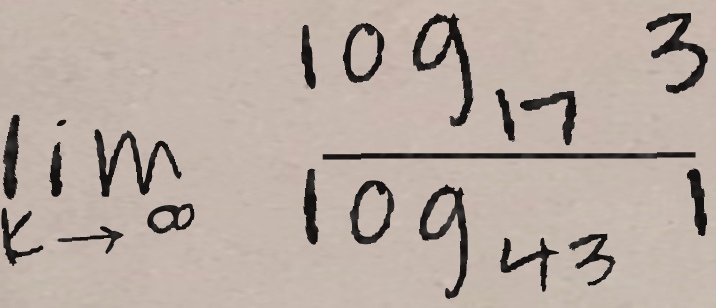 lim k→∞ log₁₇ 3 / log₄₃ 1